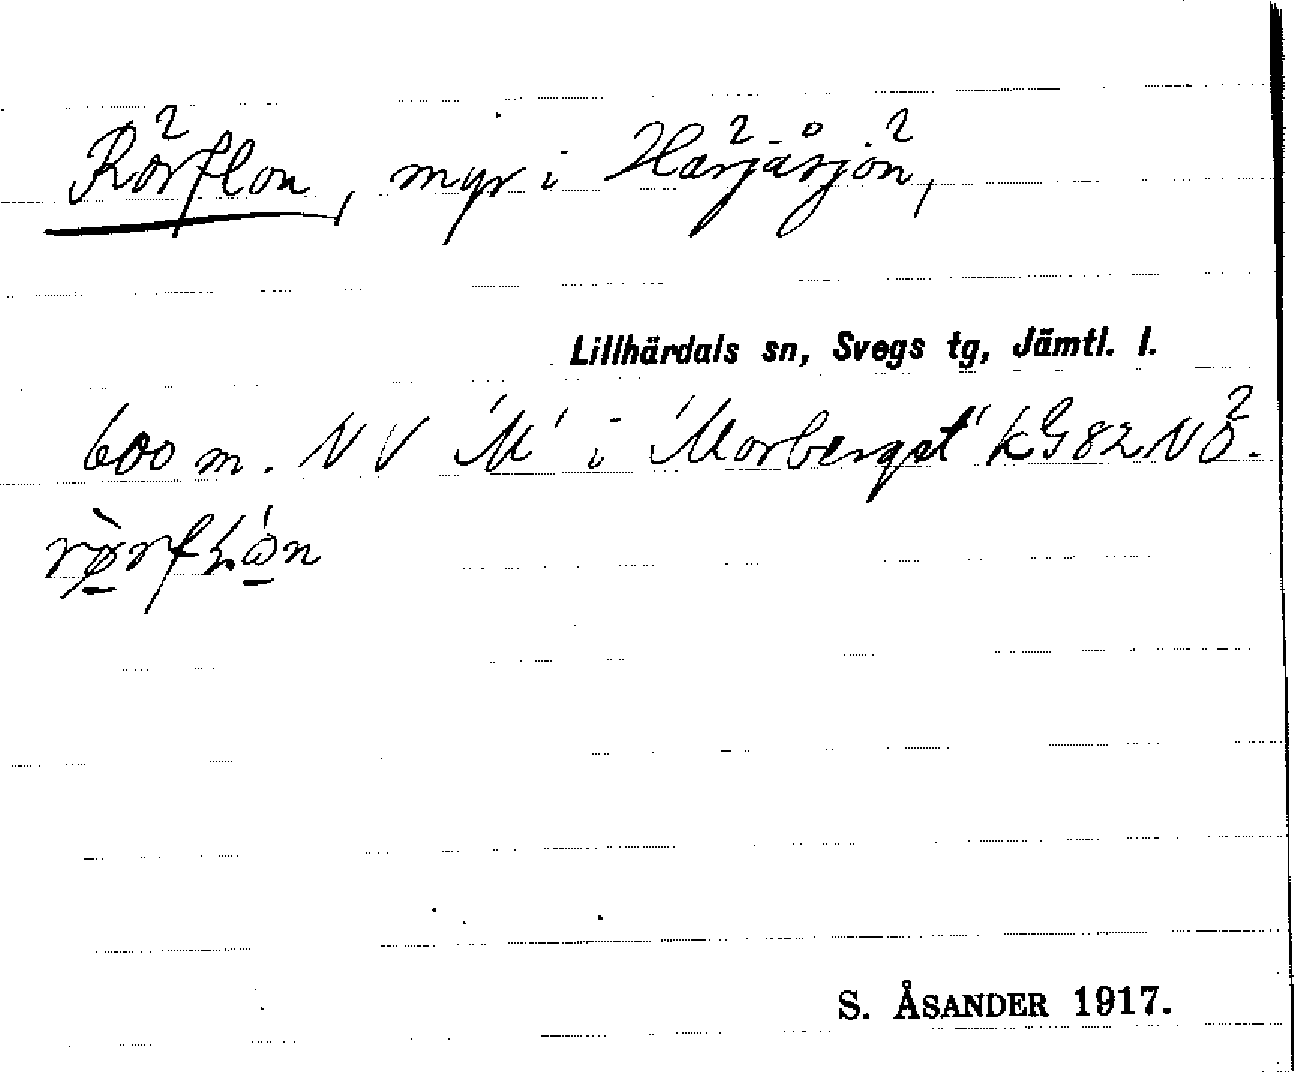 Rörflon, myr i Härjåsjön,
Lillhärdals sn, Svegs tg, Jämtl. l.
600 m. NV "M" i "Morberget" kG82NÖ.
S. ÅSANDER 1917.